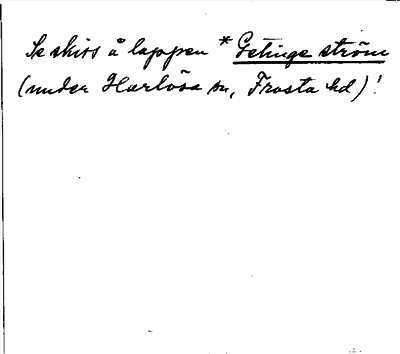 Se skiss å lappen *Getinge ström
(under Harlösa sn, Frosta hd)!